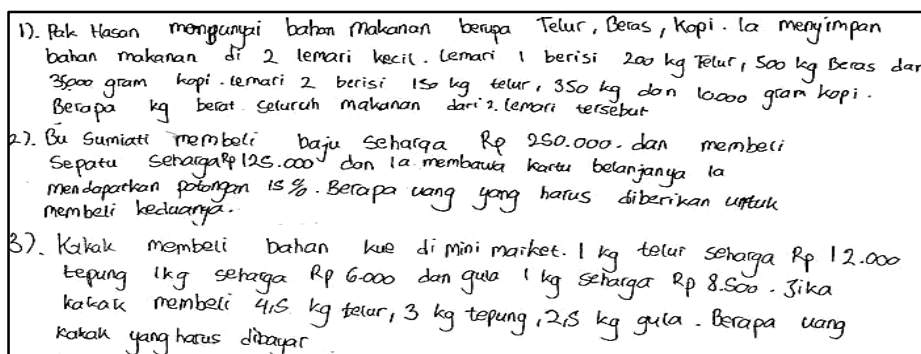 1). Pak Hasan mempunyai bahan makanan berupa Telur, Beras, Kopi. Ia menyimpan
bahan makanan di 2 lemari kecil. Lemari 1 berisi 200 kg Telur, 500 kg Beras dan
35000 gram kopi. Lemari 2 berisi 150 kg telur, 350 kg dan 10000 gram kopi.
Berapa kg berat seluruh makanan dari 2 lemari tersebut
2). Bu Sumiati membeli baju seharga Rp 250.000. dan membeli
Sepatu seharga Rp 125.000 dan ia membawa kartu belanjanya Ia
mendapatkan potongan 15 %. Berapa uang yang harus diberikan untuk
membeli keduanya.
3). Kakak membeli bahan kue di mini market. 1 kg telur seharga Rp 12.000
tepung 1kg seharga Rp 6.000 dan gula 1 kg seharga Rp 8.500. Jika
kakak membeli 4,5 kg telur, 3 kg tepung, 2,5 kg gula. Berapa uang
kakak yang harus dibayar